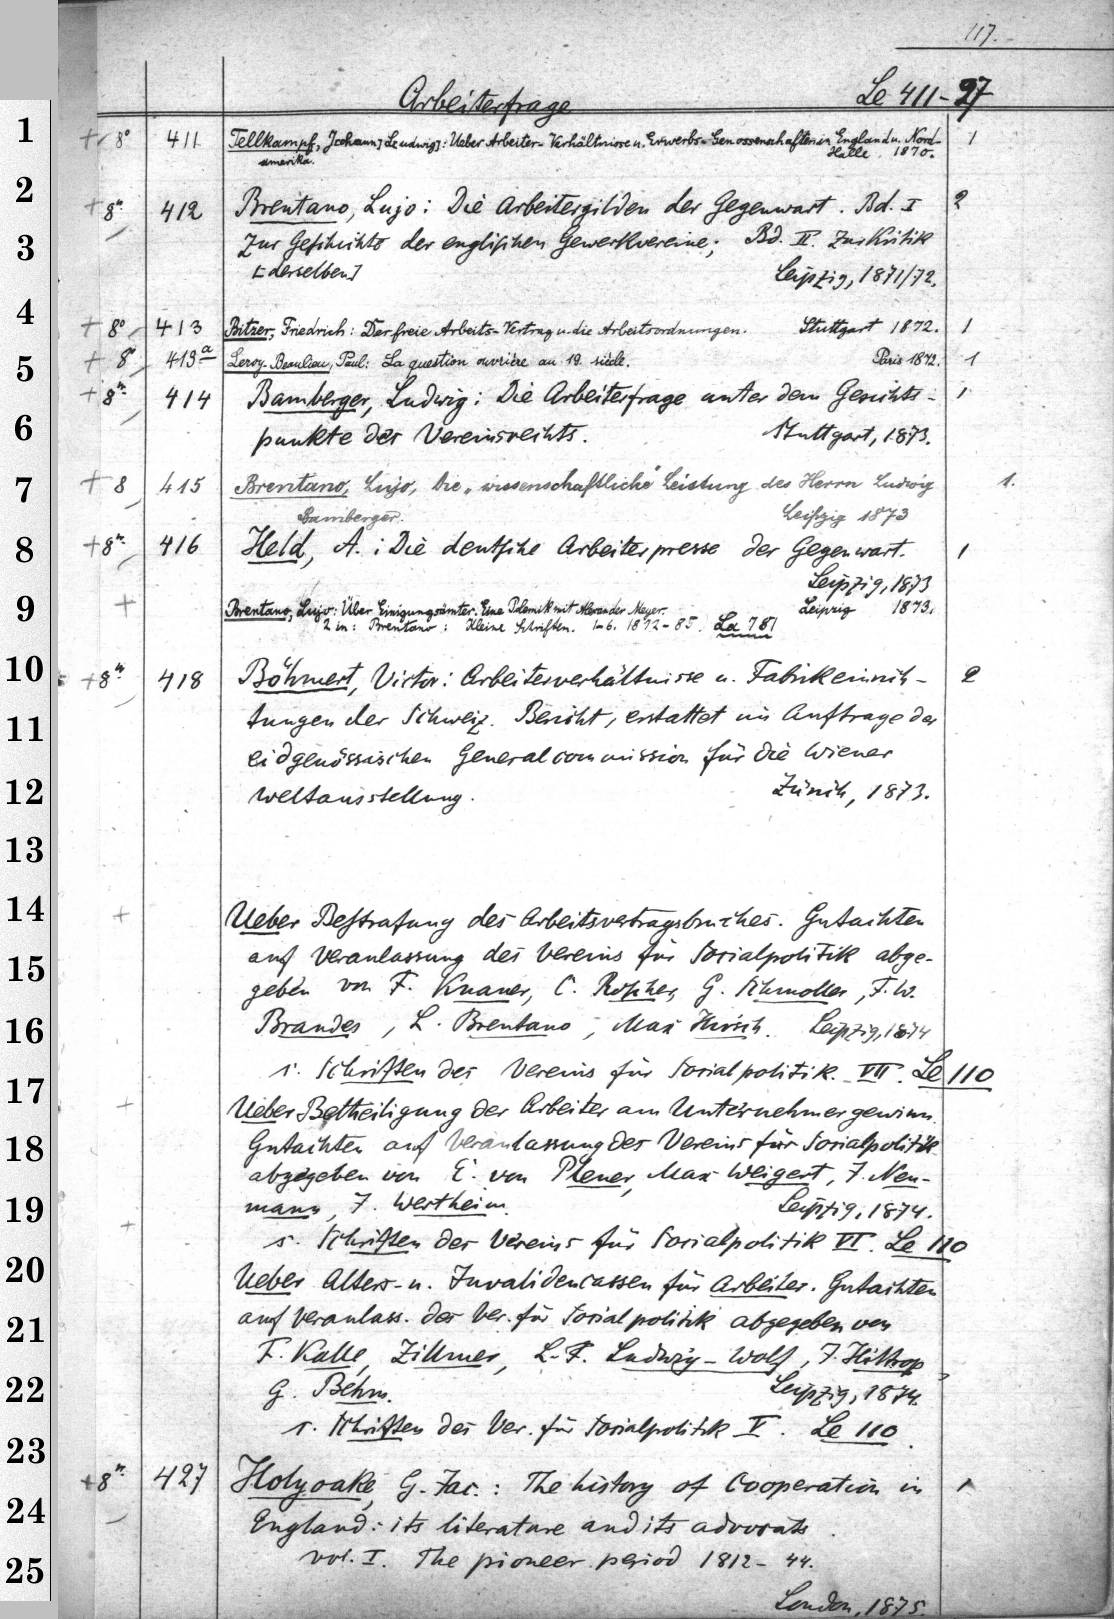 117.
Arbeiterfrage Le 411-27
1 + 8° 411 Tellkampf, J[ohann] L[udwig]: Ueber Arbeiter-Verhältnisse u. Erwerbs-Genossenschaften in England u. Nord- 1
amerika. Halle 1870.
2 + 8° 412 Brentano, Lujo: Die Arbeitergilden der Gegenwart. Bd. I 2
3 Zur Geschichte der englischen Gewerkvereine; Bd. II. Zur Kritik
[derselben] Leipzig, 1871/72.
4 + 8° 413 Bitzer, Friedrich: Der freie Arbeits-Vertrag u. die Arbeitsordnungen. Stuttgart 1872. 1
5 + 8° 413a Leroy-Beaulieu, Paul: La question ouvrière au 19. siècle. Paris 1872. 1
+ 8° 414 Bamberger, Ludwig: Die Arbeiterfrage unter dem Gesichts- 1
6 punkte des Vereinsrechts. Stuttgart, 1873.
7 + 8 415 Brentano, Lujo, Die „wissenschaftliche" Leistung des Herrn Ludwig 1.
Bamberger. Leipzig 1873
8 + 8° 416 Held, A.: Die deutsche Arbeiterpresse der Gegenwart. 1
Leipzig, 1873
9 + Brentano, Lujo: Über Einigungsämter. Eine Polemik mit Alexander Meyer. Leipzig 1873.
2 in: Brentano: Kleine Schriften. 1-6. 1872-85. La 781
10 + 8° 418 Böhmert, Victor: Arbeiterverhältnisse u. Fabrikeinrich- 2
11 tungen der Schweiz. Bericht, erstattet im Auftrage der
eidgenössischen Generalcommission für die Wiener
12 Weltausstellung. Zürich, 1873.
13
14 + Ueber Bestrafung des Arbeitsvertragsbruches. Gutachten
15 auf Veranlassung des Vereins für Socialpolitik abge-
geben von F. Knauer, C. Roscher, G. Schmoller, F. W.
16 Brandes, L. Brentano, Max Hirsch. Leipzig, 1874
s. Schriften des Vereins für Socialpolitik. VII. Le 110
17 + Ueber Betheiligung der Arbeiter am Unternehmergewinn.
18 Gutachten auf Veranlassung des Vereins für Socialpolitik
abgegeben von E. von Plener, Max Weigert, J. Neu-
19 mann, J. Wertheim. Leipzig, 1874.
+ s. Schriften des Vereins für Socialpolitik VI. Le 110
20 Ueber Alters- u. Invalidencassen für Arbeiter. Gutachten
21 auf Veranlass. des Ver. für Socialpolitik abgegeben von
F. Kalle, Zillmer, L.-F. Ludwig-Wolf, J. Hiltrop,
22 G. Behm. Leipzig, 1874.
s. Schriften des Ver. für Socialpolitik V. Le 110.
23 + 8° 427 Holyoake, G. Jac.: The history of Cooperation in 1
24 England: its literature and its advocats.
25 vol. I. The pioneer period 1812-44.
London, 1875.